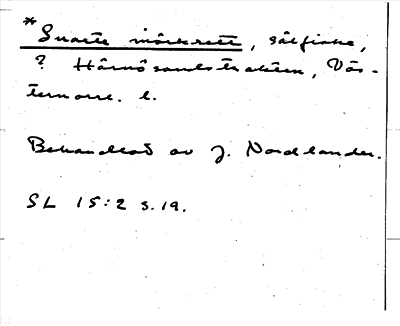 *Svarta mörkrett, sälfiske,
? Härnösandstrakten, Väs-
ternorrl. l.
Behandlad av J. Nordlander.
SL 15:2 s.19.